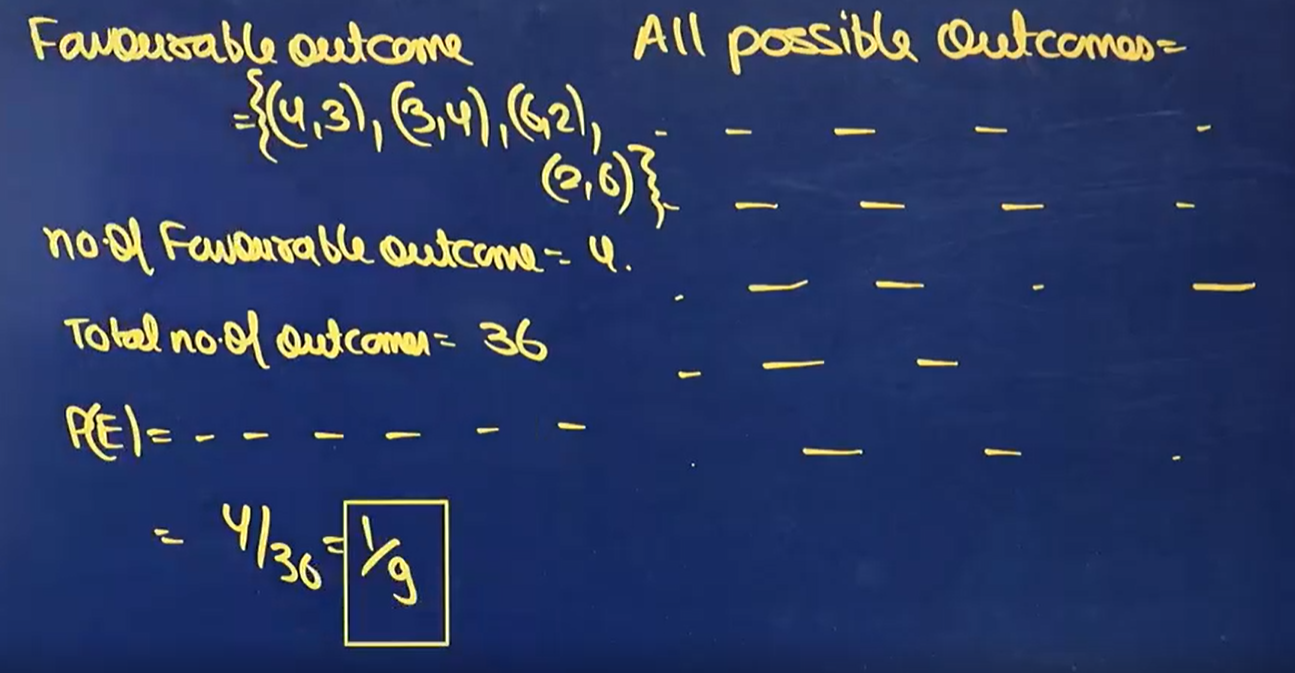 Favourable outcome
={(4,3), (3,4), (6,2),
(2,6)}
no.of Favourable outcome = 4.
Total no.of outcomes = 36
P(E) = - - - - - -
= 4/36 = 1/9
All possible outcomes =
- - - - -
- - - - -
. - - - -
- - -
. - - -